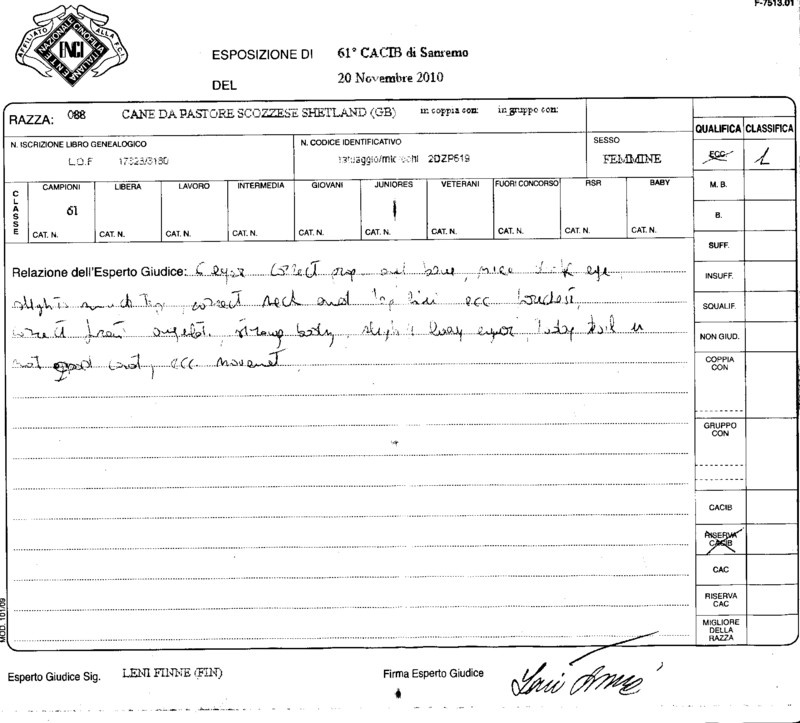 F-7513.01
AFFILIATO ALLA F.C.I.
ENTE NAZIONALE CINOFILIA ITALIANA
ENCI
ESPOSIZIONE DI 61° CACIB di Sanremo
DEL 20 Novembre 2010
RAZZA: 088 CANE DA PASTORE SCOZZESE SHETLAND (GB) in coppia con: in gruppo con:
QUALIFICA CLASSIFICA
N. ISCRIZIONE LIBRO GENEALOGICO N. CODICE IDENTIFICATIVO SESSO
L.O.F 2DZP619 FEMMINE
ECC. 1
CLASSE
CAMPIONI LIBERA LAVORO INTERMEDIA GIOVANI JUNIORES VETERANI FUORI CONCORSO RSR BABY
61
CAT. N. CAT. N. CAT. N. CAT. N. CAT. N. CAT. N. CAT. N. CAT. N. CAT. N. CAT. N.
M. B.
B.
SUFF.
INSUFF.
SQUALIF.
NON GIUD.
COPPIA CON
GRUPPO CON
CACIB
RISERVA CACIB
CAC
RISERVA CAC
MIGLIORE DELLA RAZZA
Relazione dell'Esperto Giudice: correct and nice eye
correct neck and top line ecc
correct front strong body, is
not good coat, ecc movement
MOD. 101/09
Esperto Giudice Sig. LENI FINNE (FIN) Firma Esperto Giudice